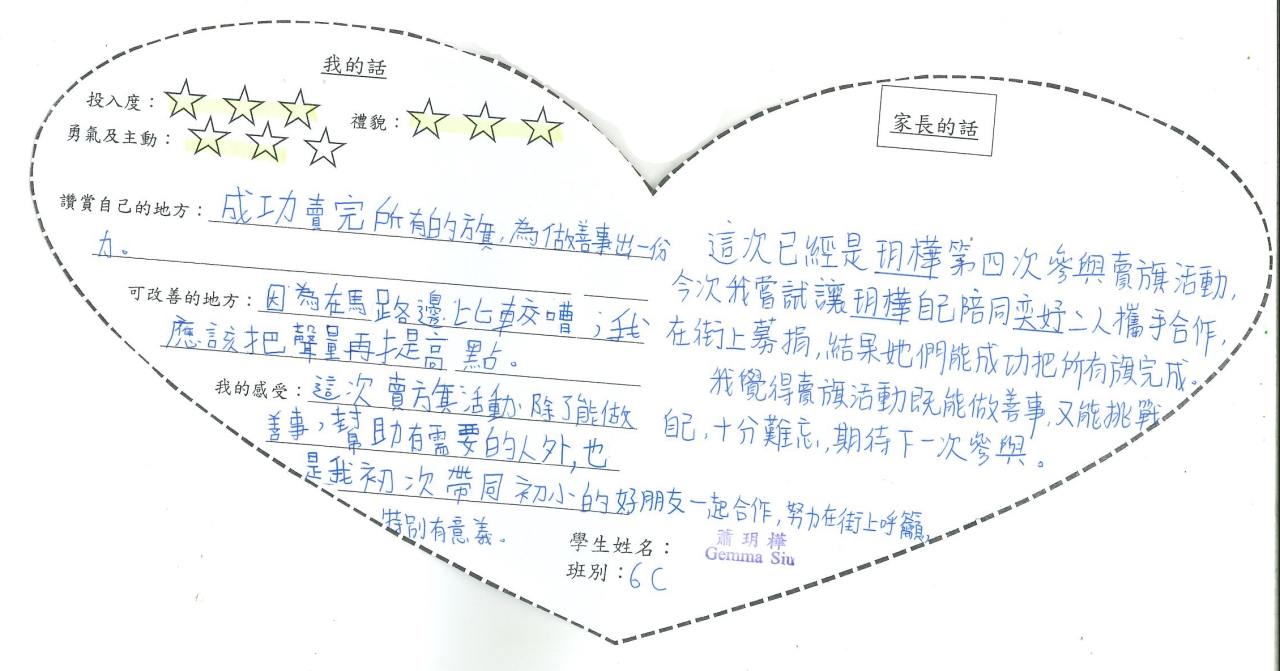 我的話
投入度：☆☆☆ 禮貌：☆☆☆
勇氣及主動：☆☆☆
讚賞自己的地方：成功賣完所有的旗，為做善事出一份
力。
可改善的地方：因為在馬路邊比較嘈，我
應該把聲量再提高點。
我的感受：這次賣旗活動除了能做
善事，幫助有需要的人外，也
是我初次帶同初小的好朋友一起合作，努力在街上呼籲，
特別有意義。
學生姓名：蕭玥樺
Gemma Siu
班別：6C
家長的話
這次已經是玥樺第四次參與賣旗活動，
今次我嘗試讓玥樺自己陪同奕妤二人攜手合作，
在街上募捐，結果她們能成功把所有旗完成。
我覺得賣旗活動既能做善事，又能挑戰
自己，十分難忘，期待下一次參與。